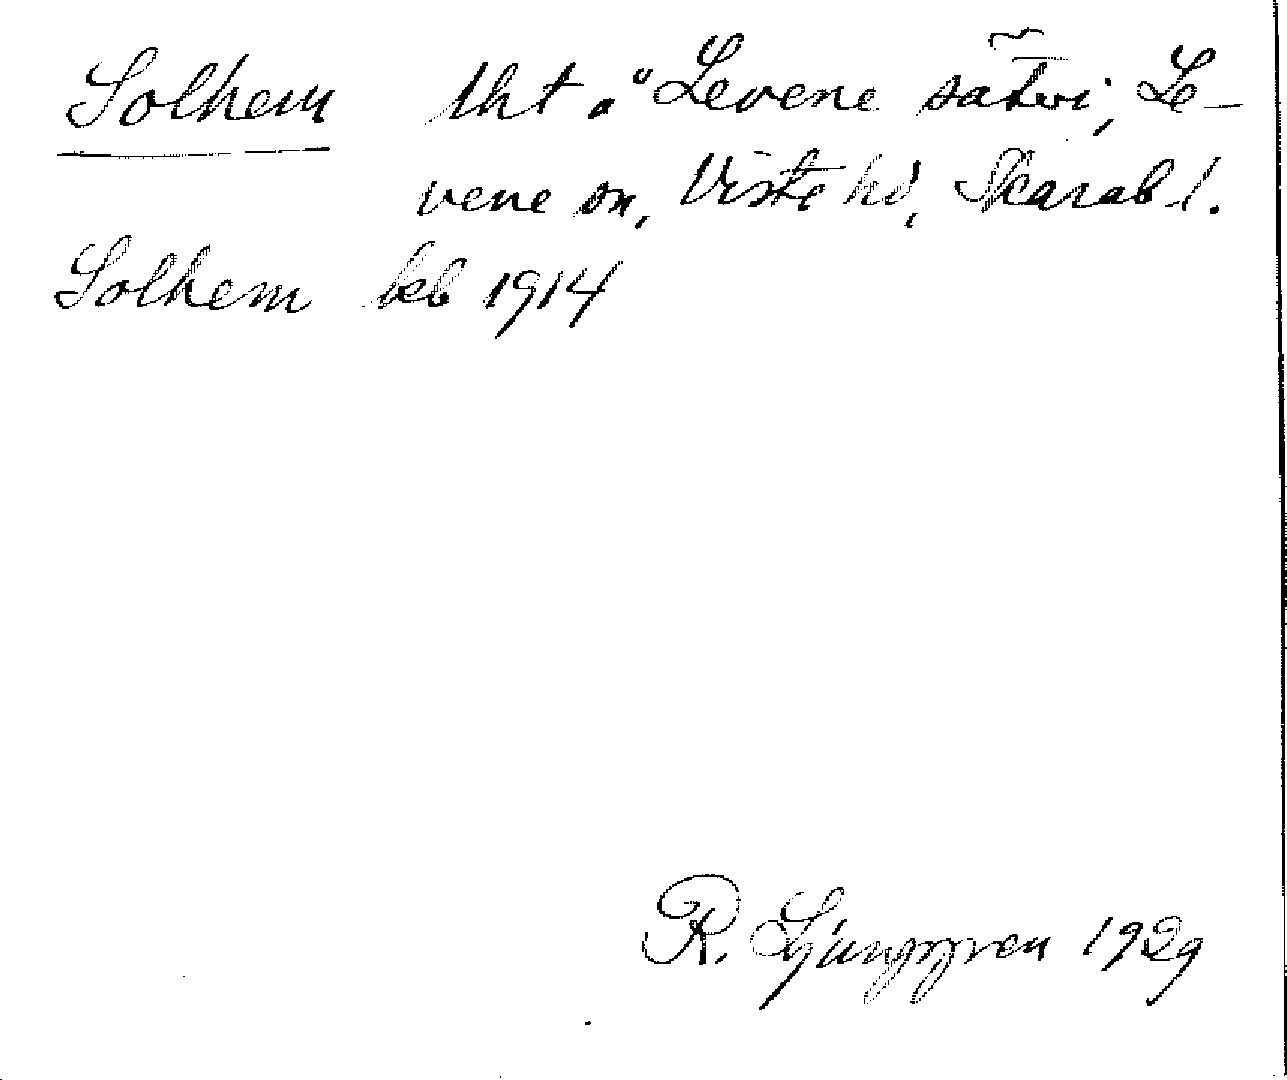 Solhem lht. å Levene säteri, Le-
vene sn, Viste hd, Skarab. l.
Solhem kb 1914
R. Ljunggren 1929